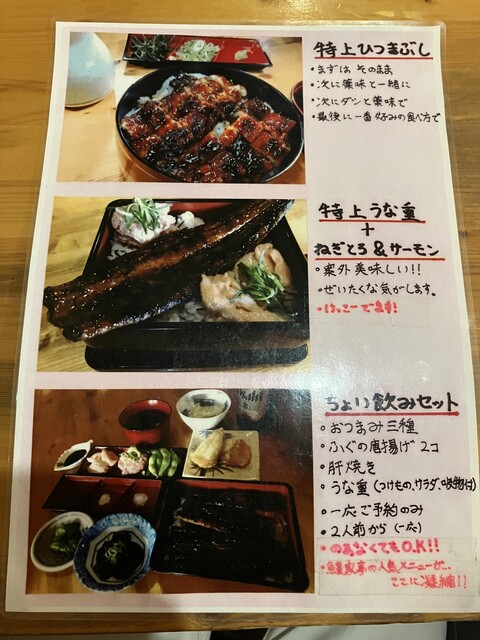 特上ひつまぶし
・まずは そのまま
・次に薬味と一緒に
・次にダシと薬味で
・最後に一番好みの食べ方で
特上うな重
+
ねぎとろ&サーモン
・案外美味しい!!
・ぜいたくな気がします。
・けっこーでます!
ちょい飲みセット
・おつまみ三種
・ふぐの唐揚げ 2コ
・肝焼き
・うな重(つけもの、サラダ、吸物付)
・一応ご予約のみ
・2人前から(一応)
・のまなくてもO.K!!
亭の人気メニューが、、
ここに凝縮!!